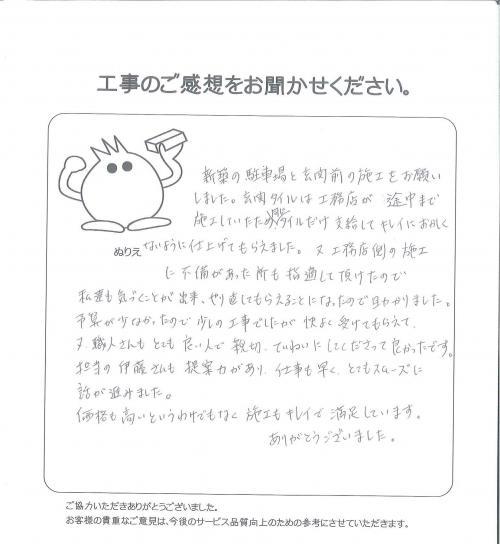 工事のご感想をお聞かせください。
新築の駐車場と玄関前の施工をお願い
しました。玄関タイルは工務店が 途中まで
施工していたためタイルだけ支給してキレイにおかしく
ぬりえ
ないように仕上げてもらえました。又 工務店側の施工
に不備があった所も指適して頂けたので
私達も気づくことが出来、やり直してもらえることになったので助かりました。
予算が少なかったので 少しの工事でしたが 快よく受けてもらえて、
又、職人さんも とても 良い人で 親切、ていねいに してくださって良かったです。
担当の 伊藤さんも 提案力があり、仕事も早く、とてもスムーズに
話が進みました。
価格も高いというわけでもなく 施工もキレイで 満足しています。
ありがとうございました。
ご協力いただきありがとうございました。
お客様の貴重なご意見は、今後のサービス品質向上のための参考にさせていただきます。